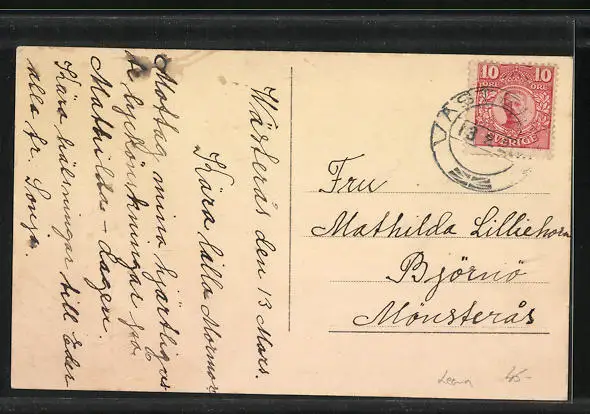 Västerås den 13 Mars.
Kära lilla Mormor
Mottag mina hjärtligas
te lyckönskningar på
Mathilda-dagen.
Kära hälsningar till Eder
alla fr. Sonja.
10 10
ÖRE ÖRE
SVERIGE
VÄST
13
Fru
Mathilda Lilliehorn
Björnö
Mönsterås
45-